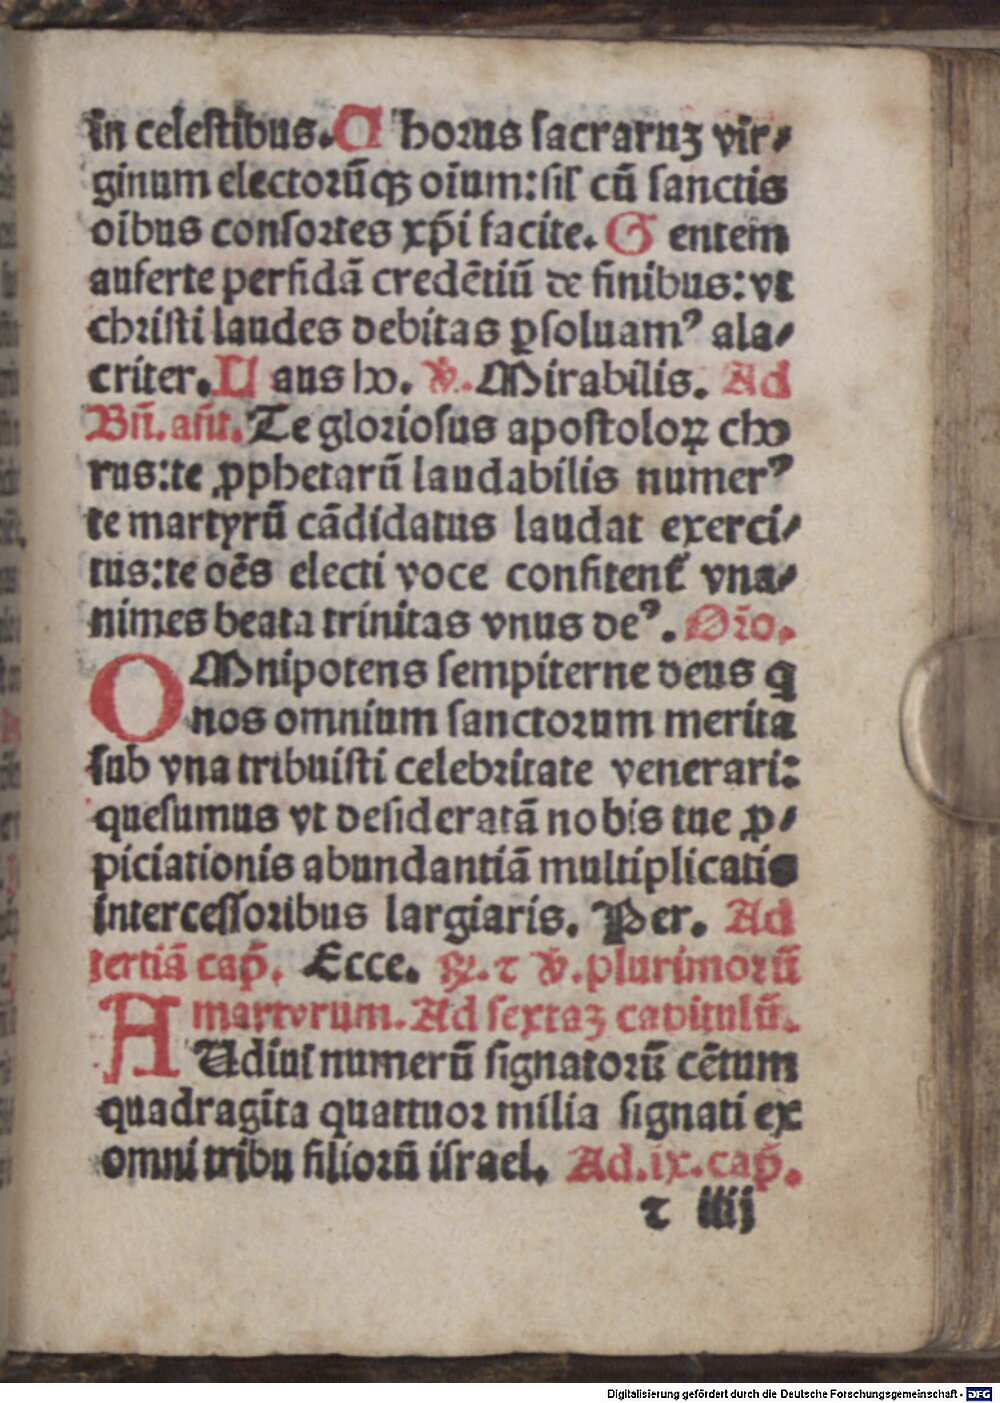 in celestibus. Chorus sacraruꝫ vir⸗
ginum electorūqꝫ oīum: sil' cū sanctis
oībus consortes xp̄i facite. Gentem
auferte perfidā credētiū de finibus: vt
christi laudes debitas ꝑsoluamꝰ ala⸗
criter. Laus ho. ℣. Mirabilis. Ad
Bn̄. an̄t. Te gloriosus apostoloꝝ cho
rus: te ꝓphetarū laudabilis numerꝰ
te martyrū cādidatus laudat exerci⸗
tus: te oēs electi voce confitent᷑ vna⸗
nimes beata trinitas vnus deꝰ. Or̄o.
OMnipotens sempiterne deus q̄
nos omnium sanctorum merita
sub vna tribuisti celebritate venerari:
quesumus vt desideratā nobis tue ꝓ⸗
piciationis abundantiā multiplicatis
intercessoribus largiaris. Per. Ad
tertiā cap̄. Ecce. ℟. ⁊ ℣. plurimorū
martyrum. Ad sextaꝫ capitulū.
AUdiui numerū signatorū cētum
quadraginta quattuor milia signati ex
omni tribu filiorū israel. Ad. ix. cap̄.
t iiij
Digitalisierung gefördert durch die Deutsche Forschungsgemeinschaft - DFG